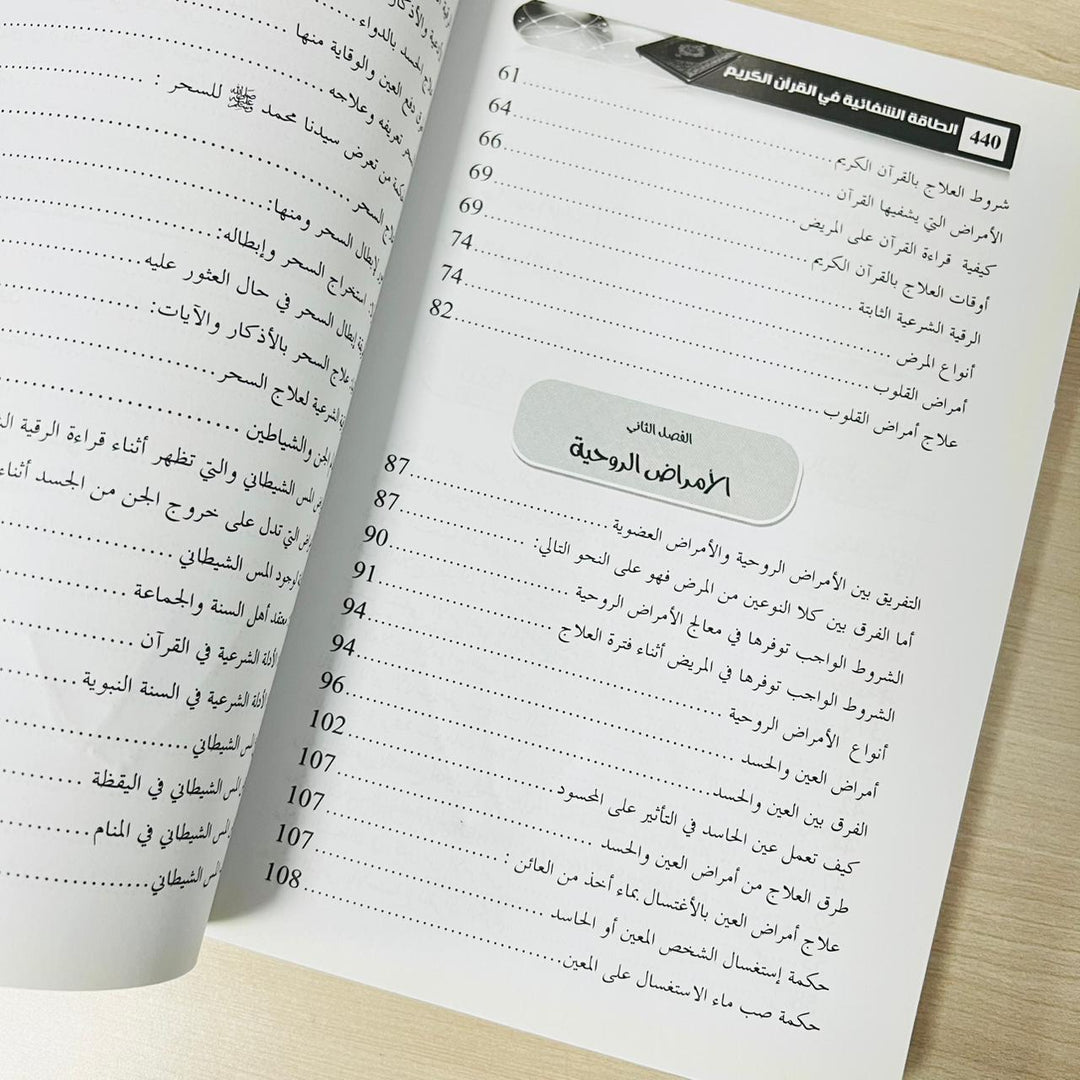 440 الطاقة الشفائية في القرآن الكريم
شروط العلاج بالقرآن الكريم 61
الأمراض التي يشفيها القرآن 64
كيفية قراءة القرآن على المريض 66
أوقات العلاج بالقرآن الكريم 69
الرقية الشرعية الثابتة 69
أنواع المرض 74
أمراض القلوب 74
علاج أمراض القلوب 82
الفصل الثاني
الأمراض الروحية
التفريق بين الأمراض الروحية والأمراض العضوية 87
أما الفرق بين كلا النوعين من المرض فهو على النحو التالي: 87
الشروط الواجب توفرها في معالج الأمراض الروحية 90
الشروط الواجب توفرها في المريض أثناء فترة العلاج 91
أنواع الأمراض الروحية 94
أمراض العين والحسد 94
الفرق بين العين والحسد 96
كيف تعمل عين الحاسد في التأثير على المحسود 102
طرق العلاج من أمراض العين والحسد 107
علاج أمراض العين بالأغتسال بماء أخذ من العائن : 107
حكمة إستغسال الشخص المعين أو الحاسد 107
حكمة صب ماء الاستغسال على المعين 108
الحسد بالدواء
دفع العين والوقاية منها
تعريفه وعلاجه
من تعرض سيدنا محمد ﷺ للسحر :
السحر
لإبطال السحر ومنها:
استخراج السحر وإبطاله:
إبطال السحر في حال العثور عليه
علاج السحر بالأذكار والآيات:
الشرعية لعلاج السحر
الجن والشياطين
المس الشيطاني والتي تظهر أثناء قراءة الرقية
التي تدل على خروج الجن من الجسد أثناء
لوجود المس الشيطاني
معتقد أهل السنة والجماعة
الأدلة الشرعية في القرآن
الأدلة الشرعية في السنة النبوية
المس الشيطاني
المس الشيطاني في اليقظة
المس الشيطاني في المنام
المس الشيطاني